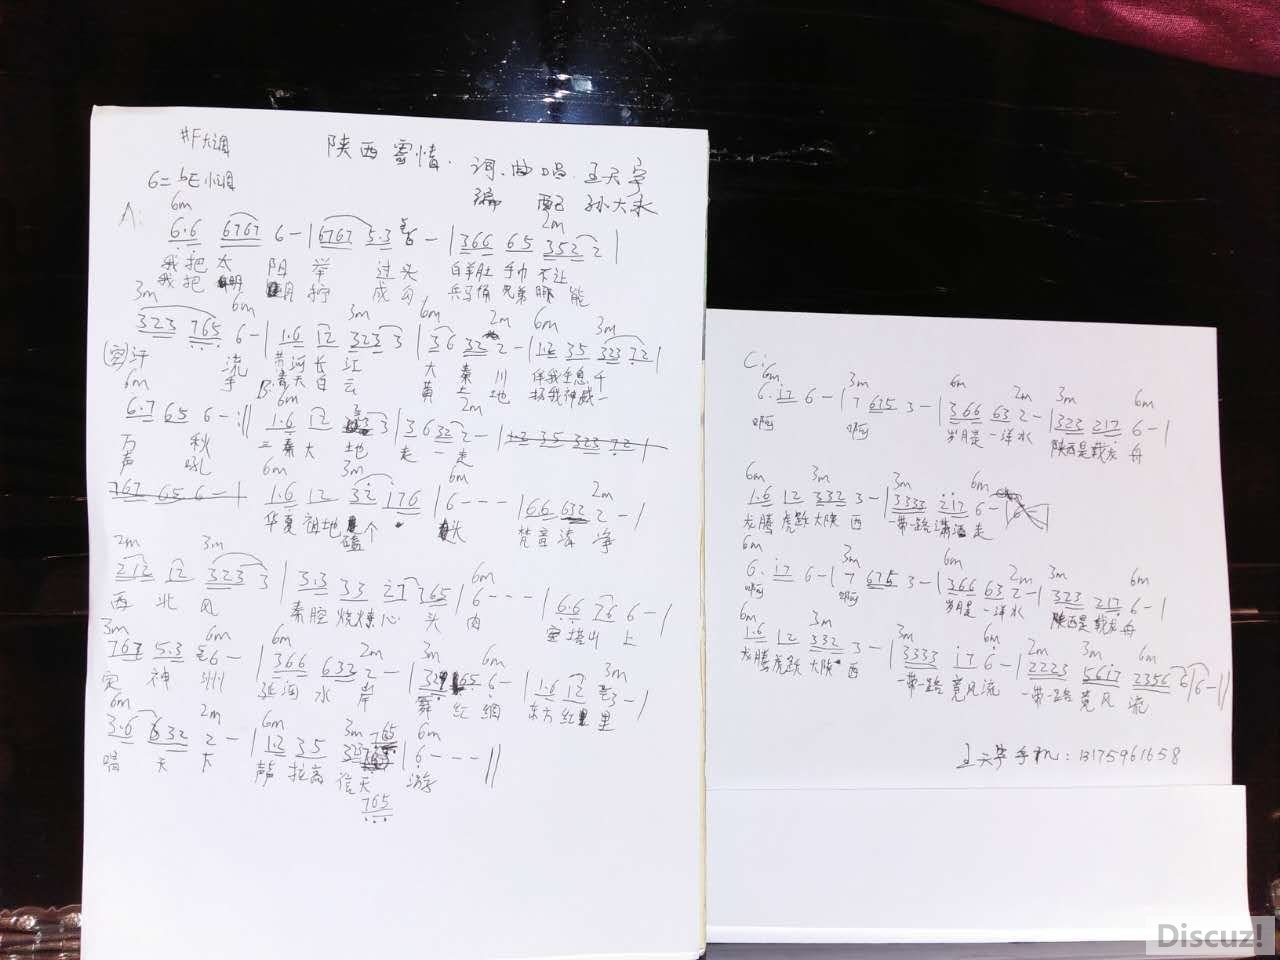 #F大调
陕西
词.曲唡.王天宇
6=bE小调
编 配 孙大永
6m
A:
6.6 6767 6-|6767 5.3 6-|366 65 352 2|
2m
我把太阳举过头 白羊肚手巾不让
我把 月拧成勾 兵马俑兄弟 能
3m 6m 3m 6m 2m 6m 3m
323 765 6-|1.6 12 323 3|36 32 2-|1.2 35 323 72|
汗流 黄河长江 大秦川 伴我生息千
手 B: 蓝天白云 黄土地 扬我神威一
6m 6m 2m
6.7 65 6-:||1.6 12 3|36 32 2-|1.2 35 323 72|
万秋 三秦大地走一走
声吼
6m 3m 6m 2m
767 65 6-|1.6 12 32 176|6---|66 632 2-|
华夏祖地磕个头 梵音清净
2m 3m 6m
212 12 323 3|3.3 33 27 765|6---|6.6 76 6-|
西北风 秦腔烧燎心头肉 宝塔山上
3m 6m 6m 2m 3m 6m 3m
767 5.3 6-|366 632 2-|32 165 6-|1.6 12 3-|
定神州 延河水岸 舞红绸 东方红里
6m 2m 6m 3m 6m
3.6 632 2-|1.2 35 323 765|6---||
唱天下 声声拉高信天游
765
C:
6m 3m 6m 2m 3m 6m
6.17 6-|7 675 3-|366 63 2-|323 217 6-|
啊 啊 岁月是一洋水 陕西是载龙舟
6m 3m 3m
1.6 12 332 3-|3333 217 6-
龙腾虎跃大陕西 一带一路潇洒走
6m 3m 6m 2m 3m 6m
6.17 6-|7 675 3-|366 63 2-|323 217 6-|
啊 啊 岁月是一洋水 陕西是载龙舟
6m 3m 3m 6m 2m 3m 6m
1.6 12 332 3-|3333 17 6-|2223 5617 2356 6|6-||
龙腾虎跃大陕西 一带一路竞风流 一带一路竞风流
王天宇手机:13175961658
Discuz!